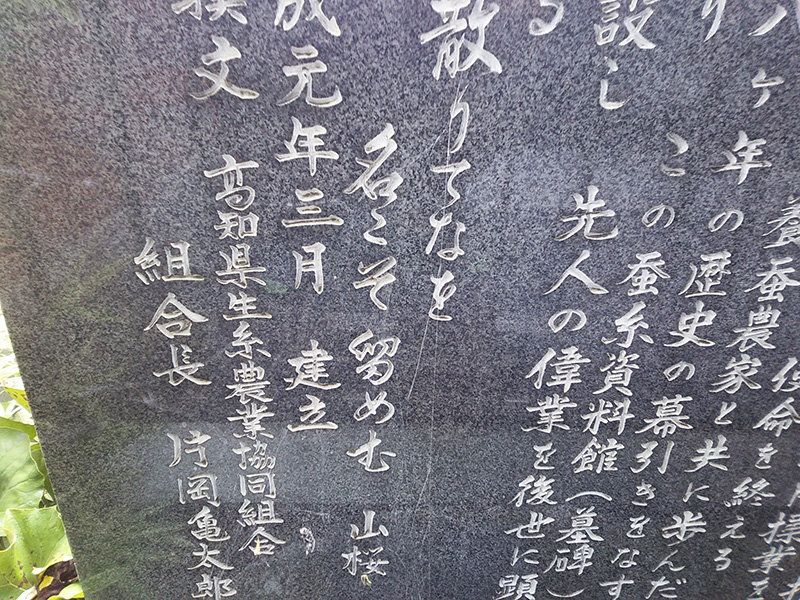 月操業を
使命を終える
養蚕農家と共に歩んだ
八ヶ年の歴史の幕引きをなす
り この蚕糸資料館(墓碑)
設し 先人の偉業を後世に顕
る
散りてなを
名こそ留めむ 山桜
成元年三月 建立
撰文 高知県生糸農業協同組合
組合長 片岡亀太郎